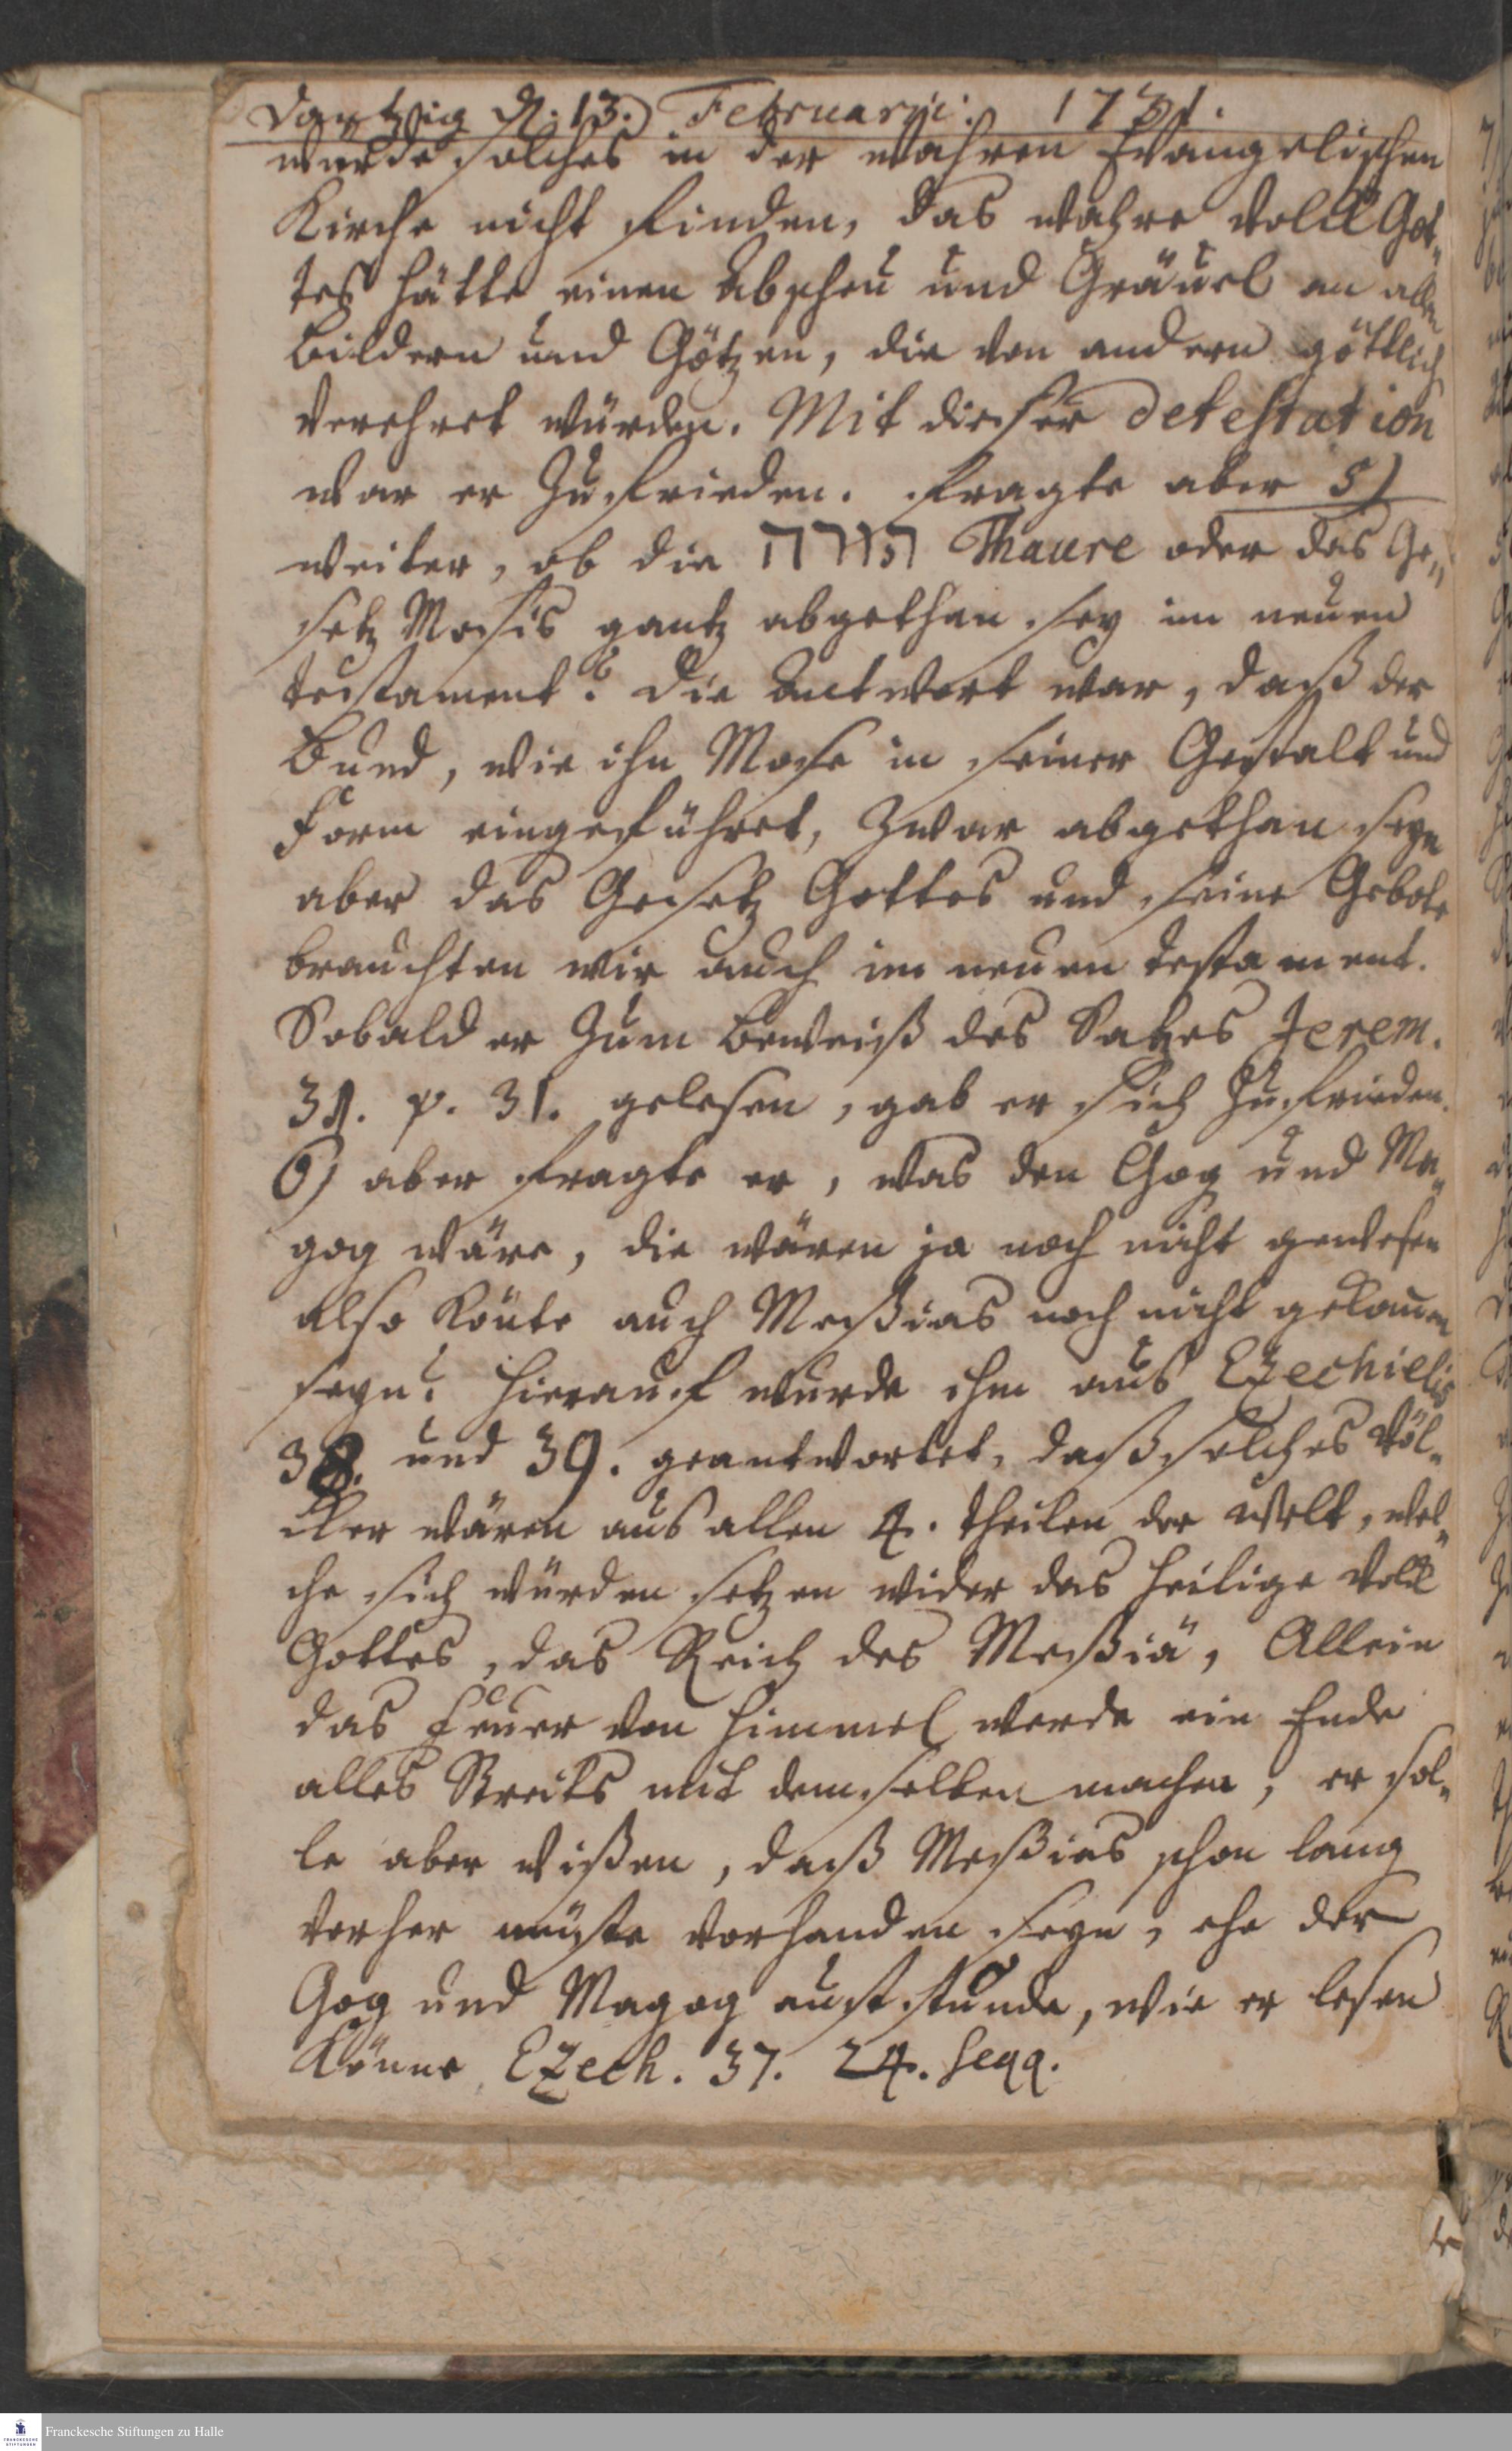 Dantzig d. 13. Februarii. 1731.
würde solches in der wahren Evangelischen
Kirche nicht finden, das wahre Volck Got„
tes hätte einen Abscheu und Gräuel an allen
Bildern und Götzen, die von andern göttlich
verehret würden. Mit dieser detestation
war er zufrieden. fragte aber 5)
weiter, ob die תורה Thaure oder das Ge„
setz Mosis gantz abgethan sey im neuen
testament? Die Antwort war, daß der
Bund, wie ihn Mose in seiner Gestalt und
Form eingeführet, zwar abgethan seye
aber das Gesetz Gottes und seine Gebote
brauchten wir auch im neuen testament.
Sobald er zum Beweiß des Satzes Jerem.
31. p. 31. gelesen, gab er sich zufrieden.
6) aber fragte er, was den Gog und Ma„
gog wäre, die wären ja noch nicht gewesen
also könte auch Meßias noch nicht gekomen
seyn? Hierauf wurde ihm aus Ezechielis
38. und 39. geantwortet, daß solches Völ„
cker wären aus allen 4. theilen der Welt, wel„
che sich würden setzen wider das heilige Volck
Gottes, das Reich des Meßiä, Allein
das Feuer von Himmel werde ein Ende
alles Streits mit demselben machen, er sol„
le aber wißen, daß Meßias schon lang
vorher müste vorhanden seyn, ehe der
Gog und Magog aufstünde, wie er lesen
könne Ezech. 37. 24. seqq.
Franckesche Stiftungen zu Halle